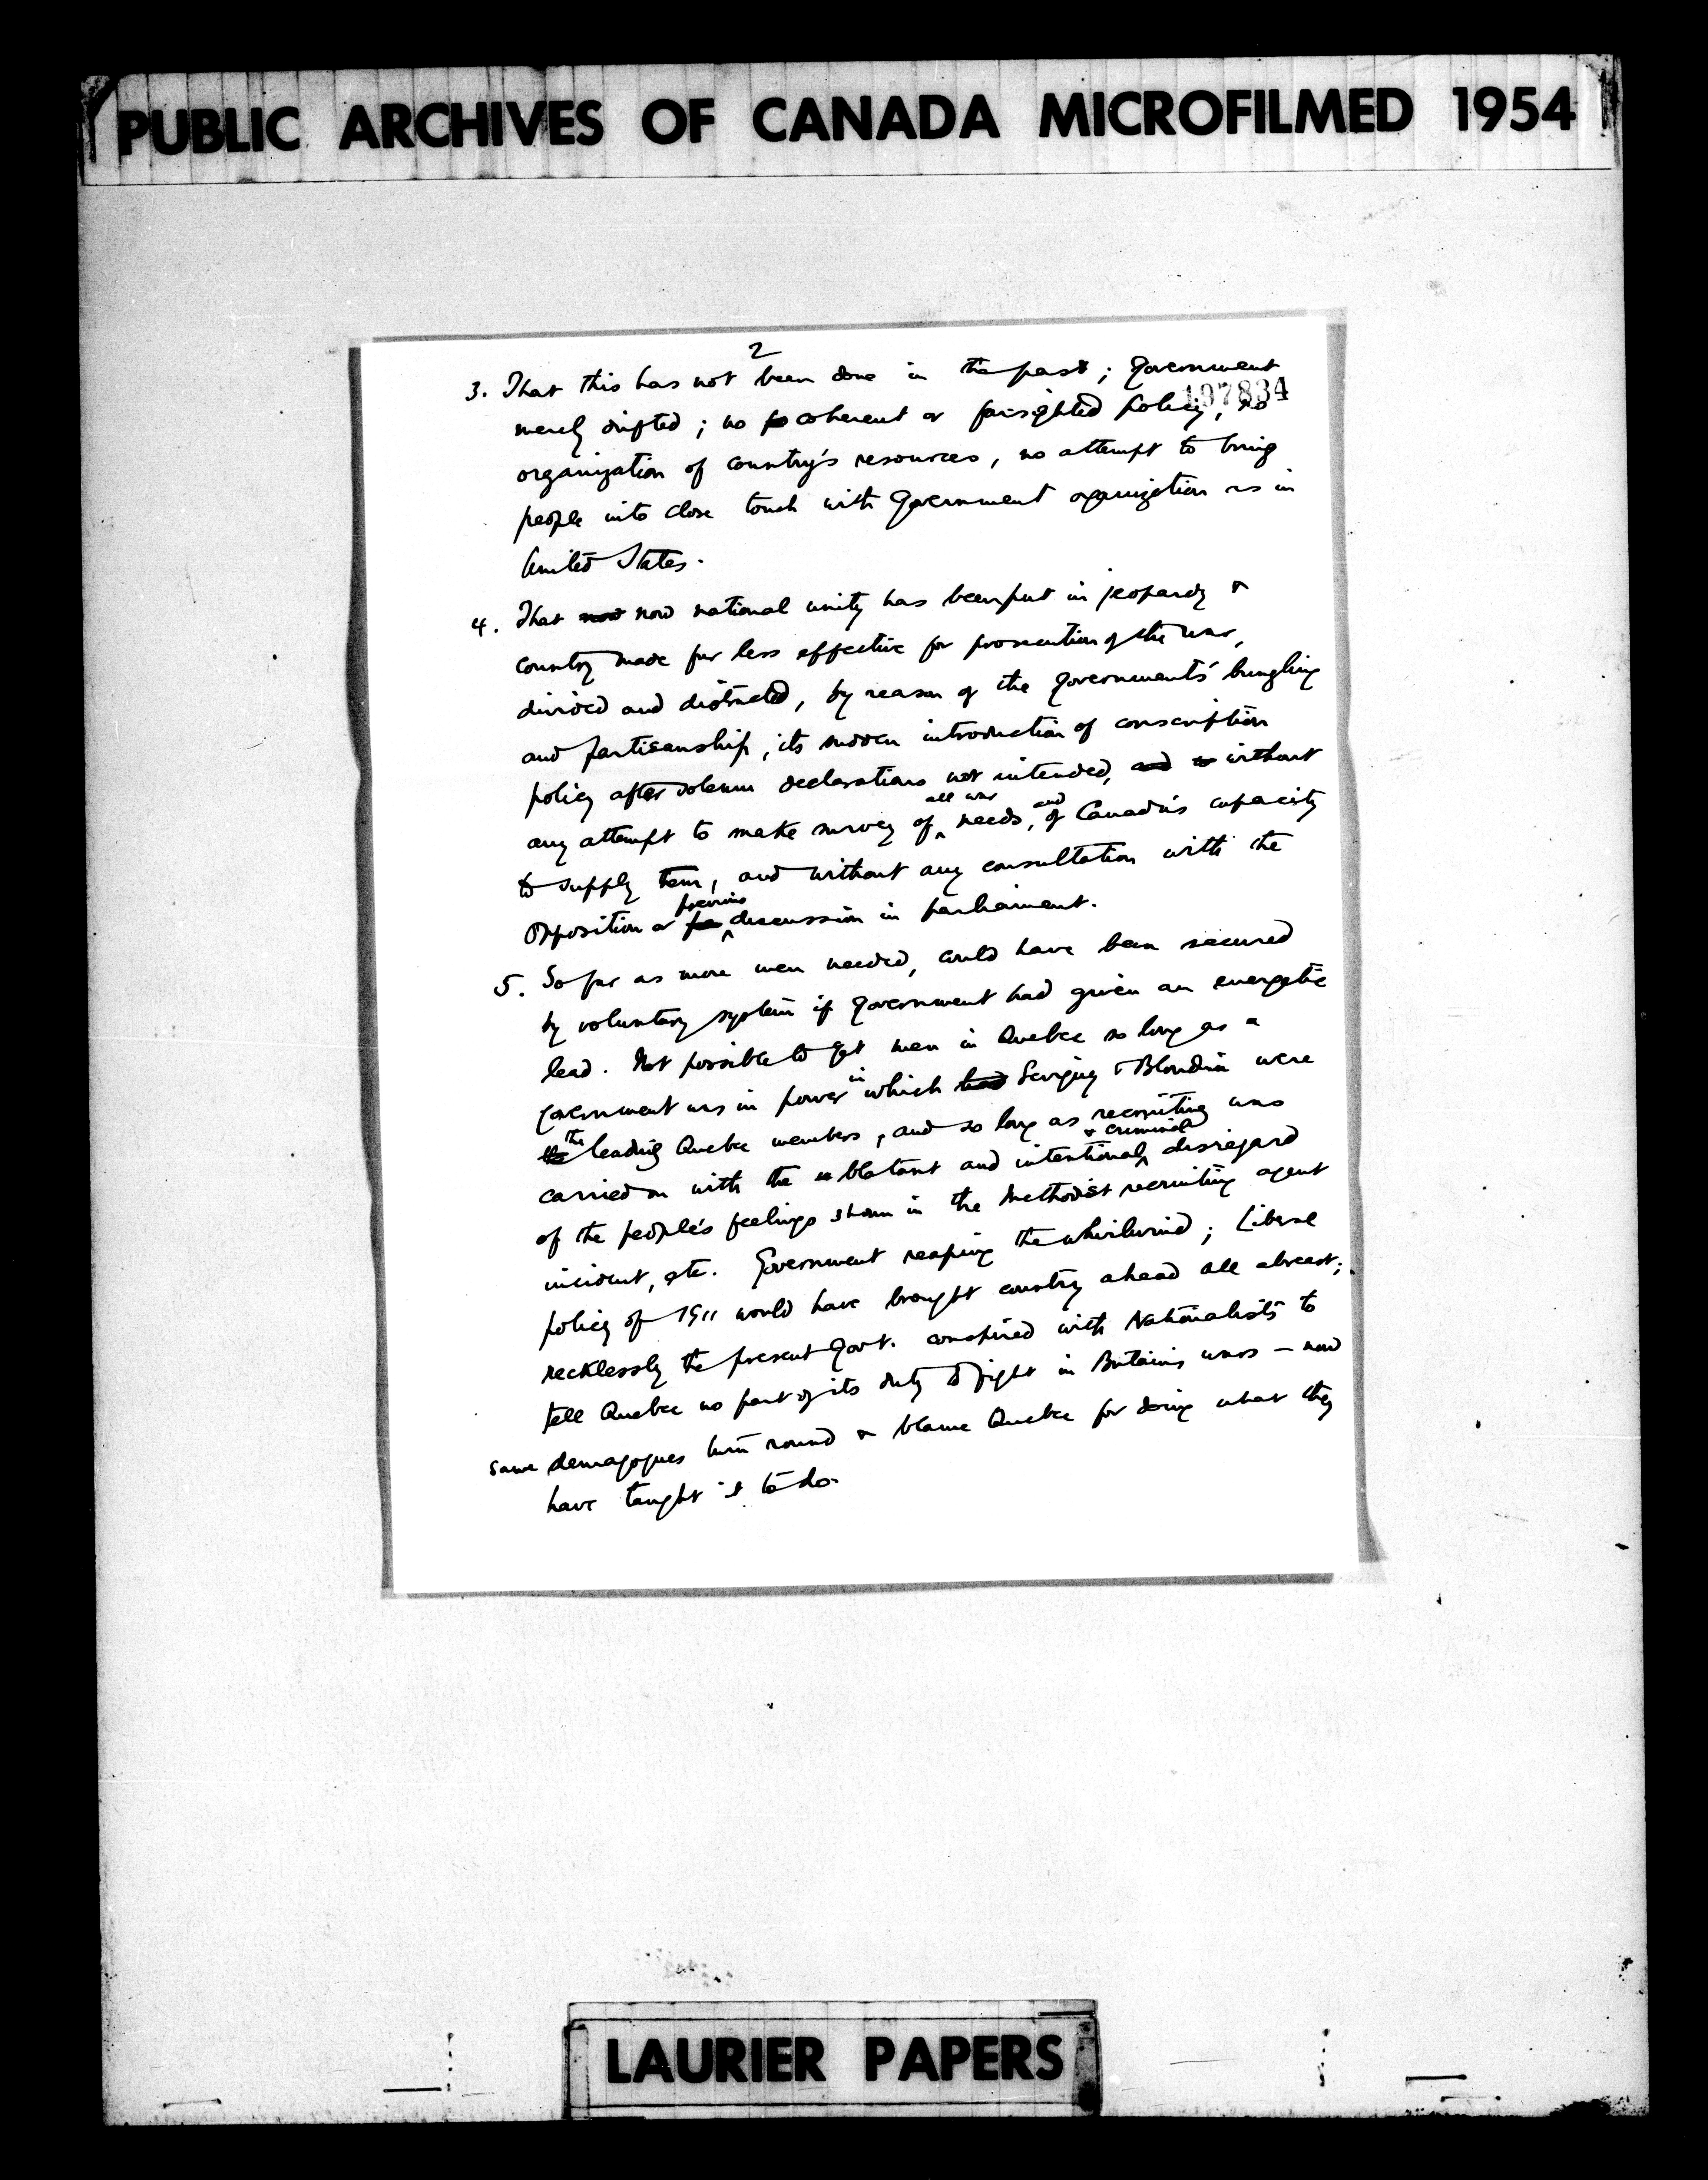 PUBLIC ARCHIVES OF CANADA MICROFILMED 1954
2
3. That this has not been done in the past; Government
197834
merely drifted; no coherent or farsighted policy, no
organization of country's resources, no attempt to bring
people into close touch with Government organization as in
United States.
4. That now now national unity has been put in jeopardy &
country made far less effective for prosecution of the war,
divided and distracted, by reason of the Governments' bungling
and partisanship, its sudden introduction of conscription
policy after solemn declarations not intended, and without
all war and
any attempt to make survey of needs, of Canada's capacity
to supply them, and without any consultation with the
previous
Opposition or discussion in parliament.
5. So far as more men needed, could have been secured
by voluntary system if Government had given an energetic
lead. Not possible to get men in Quebec so long as a
in
Government was in power which had Sevigny & Blondin were
the
the leading Quebec members, and so long as recruiting was
& criminal
carried on with the blatant and intentional disregard
of the people's feelings shown in the Methodist recruiting agent
incident, etc. Government reaping the whirlwind; Liberal
policy of 1911 would have brought country ahead all abreast;
recklessly the present Govt. conspired with Nationalists to
tell Quebec no part of its duty to fight in Britain's wars – now
same demagogues turn round & blame Quebec for doing what they
have taught it to do.
LAURIER PAPERS